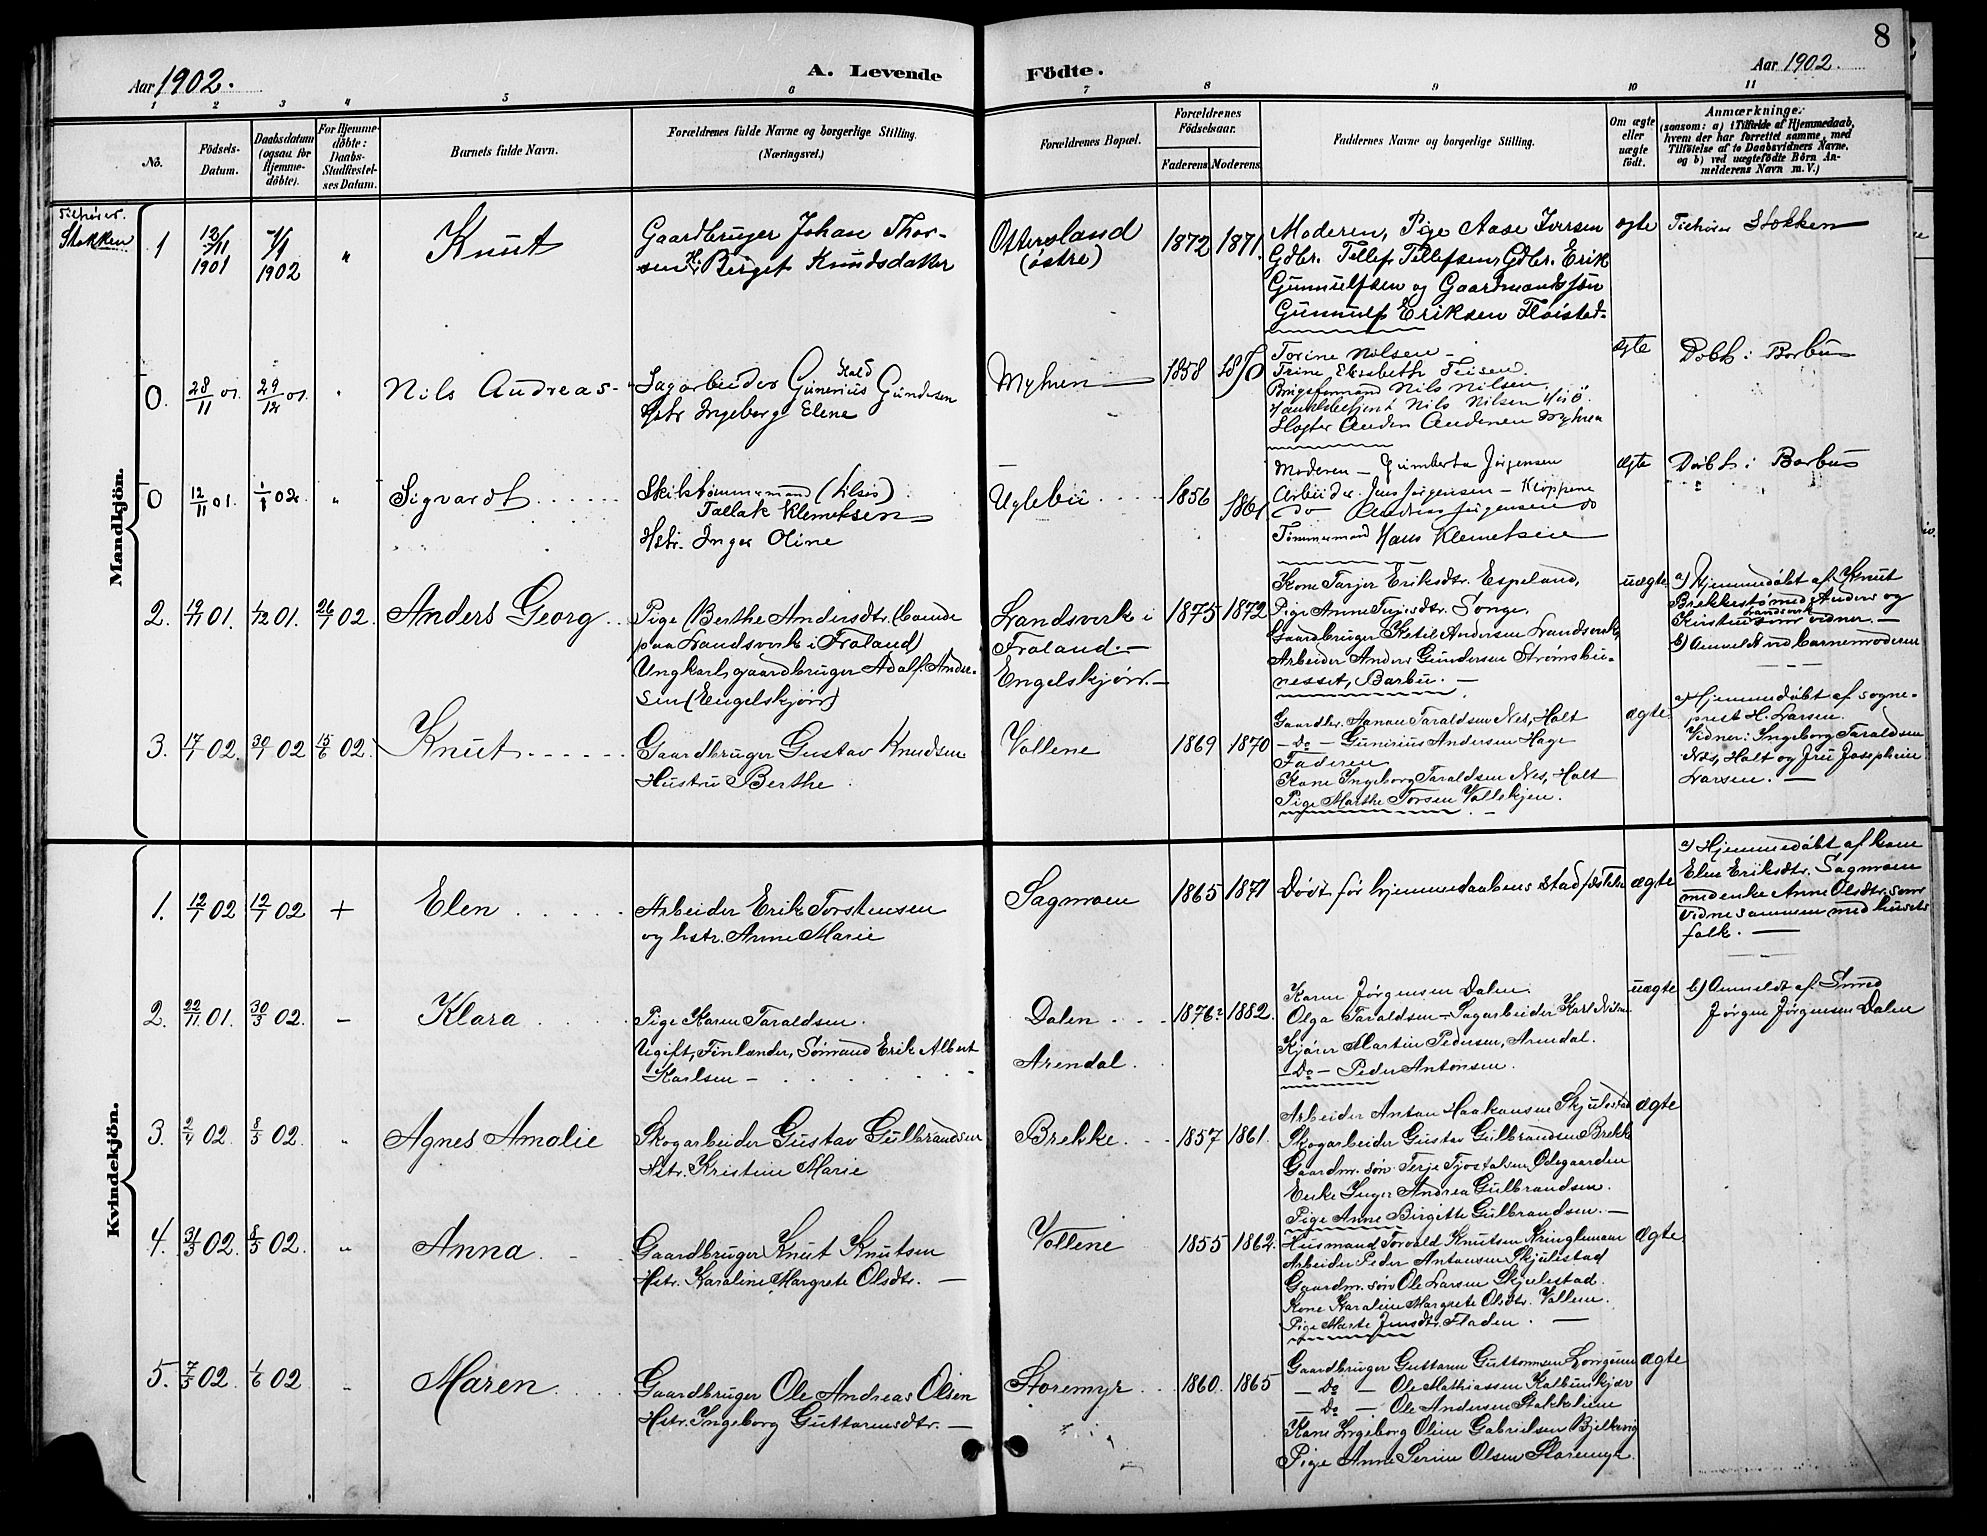 8
Aar 1902.
A. Levende Födte.
Aar 1902.
1 2 3 4 5 6 7 8 9 10 11
No.
Födsels-Datum.
Daabsdatum (ogsaa for Hjemme-döbte).
For Hjemme-döbte: Daabs-Stadfæstel-ses Datum.
Barnets fulde Navn.
Forældrenes fulde Navne og borgerlige Stilling.
(Næringsvei.)
Forældrenes Bopæl.
Forældrenes Födselsaar.
Faderens Moderens
Faddernes Navne og borgerlige Stilling.
Om ægte eller uægte födt.
Anmærkninger
(saasom: a) i Tilfælde af Hjemmedaab,
hvem der har forrettet samme, med
Tilföielse af to Daabsvidners Navne,
og b) ved uægtefödte Börn An-
melderens Navn m. V.)
Mandkjön.
Tilhører Stokken
1 12/11 1901 1/1 1902 " Knut
Gaardbruger Johan Thor-
sen H. Birget Knudsdatter
Ottersland (østre)
1872 1871.
Moderen, Pige Aase Iversen
Gdbr. Tellef Tellefsen, Gdbr. Erik
Gunnulfsen og Gaardmandssøn
Gunnulf Eriksen Fløistad.
ægte
Tilhører Stokken
0. 28/11 01. 29/12 01. " Nils Andreas
Sagarbeider Gunerius Gundersen
Hstr Ingeborg Elene
Myhren
1858
Torine Nilsen
Trine Elisabeth Teisen
Nils Nilsen
Nils Nilsen
Slagter Anders Andersen Myhren
ægte
Døbt i Barbu
0 12/11 01. 1/1 02. " Sigvardt
Skibstømmermand
Tallak Klemetsen
Hstr. Inger Oline
Uglebu
1856 1861
Moderen - Gumberta Jørgensen
Arbeider Jens Jørgensen - Kloppene
Do Andreas Jørgensen do
Tømmermand Hans Klemetsen
ægte
Døbt i Barbu
2. 19/11 01. 1/12 01. 26/1 02. Anders Georg
Pige Berthe Andersdtr. (boende
paa Landsverk i Froland)
Ungkarl, gaardbruger Adolf Ander-
sen (Engelskjøn)
Landsverk i
Froland.
Engelskjøn.
1875 1872
Kone Tarjer Eriksdtr. Espeland,
Pige Anne Terjesdtr. Songe.
Gaardbruger Ketil Andersen Landsverk,
Arbeider Anders Gundersen Strømsbu-
nesset, Barbu.
uægte
a) Hjemmedøbt af Knut
Brekkestø med Anders og
Kirsten Landsverk som vidner.
b) Anmeldt ved barnemoderen
3. 17/1 02. 30/1 02 15/6 02. Knut
Gaardbruger Gustav Knudsen
Hustru Berthe
Vollene
1869 1870
Gaardbr. Aanon Taraldsen Nes, Holt
- Do - Gunerius Andersen Hage
Faderen
Kone Ingeborg Taraldsen Nes, Holt
Pige Marthe Torsen Vallekjen.
ægte
a) Hjemmedøbt af sogne-
prest H. Larsen.
Vidner: Ingeborg Taraldsen
Nes, Holt og fru Josephine
Larsen.
Kvindekjön.
1. 12/1 02 12/1 02 + Elen
Arbeider Erik Torstensen
og hstr. Anne Marie
Sagmoen
1865 1871
Død før hjemmedaabens stadfæstelse
ægte
a) Hjemmedøbt af kone
Elen Eriksdtr. Sagmoen
med enke Anne Olsdtr. som
vidne sammen med husets
folk.
2. 22/11 01. 30/3 02. - Klara
Pige Karen Taraldsen.
Ugift, Finlænder, Sømand Erik Albert
Karlsen
Dalen
Arendal
1876? 1882.
Karen Jørgensen Dalen.
Olga Taraldsen - Sagarbeider Karl Nilsen
Kjører Martin Pedersen, Arendal.
- Do - Peder Antonsen.
uægte
b) Anmeldt af Smed
Jørgen Jørgensen Dalen
3. 2/4 02. 8/5 02. " Agnes Amalie
Skogarbeider Gustav Gulbrandsen
Hstr. Kristine Marie
Brekke
1857 1861.
Arbeider Anton Haakonsen Skjulestad
Skogarbeider Gustav Gulbrandsen Brekke
Gaardm. søn Terje Tjostolvsen Ødegaarden
Enke Inger Andrea Gulbrandsen.
Pige Anne Birgitte Gulbrandsen.
ægte
4. 31/3 02. 8/5 02. " Anna
Gaardbruger Knut Knutsen
Hstr. Karoline Margrete Olsdtr.
Vollene
1855 1862.
Husmand Torvald Knutsen Kringlemoen
Arbeider Peder Antonsen Skjulestad
Gaardm. søn Ole Larsen Skjulestad.
Kone Karoline Margrete Olsdtr. Vollene.
Pige Marte Jensdtr. Fladen.
ægte
5. 7/3 02. 1/6 02 " Maren
Gaardbruger Ole Andreas Olsen
Hstr. Ingeborg Guttormsdtr.
Storemyr
1860. 1865
Gaardbruger Guttorm Guttormsen Longum
- Do - Ole Mathiassen Kalbunskjær
- Do - Ole Andersen Stokkelien
Kone Ingeborg Oline Gabrielsen Bjelkevig
Pige Anne Serine Olsen Storemyr.
ægte